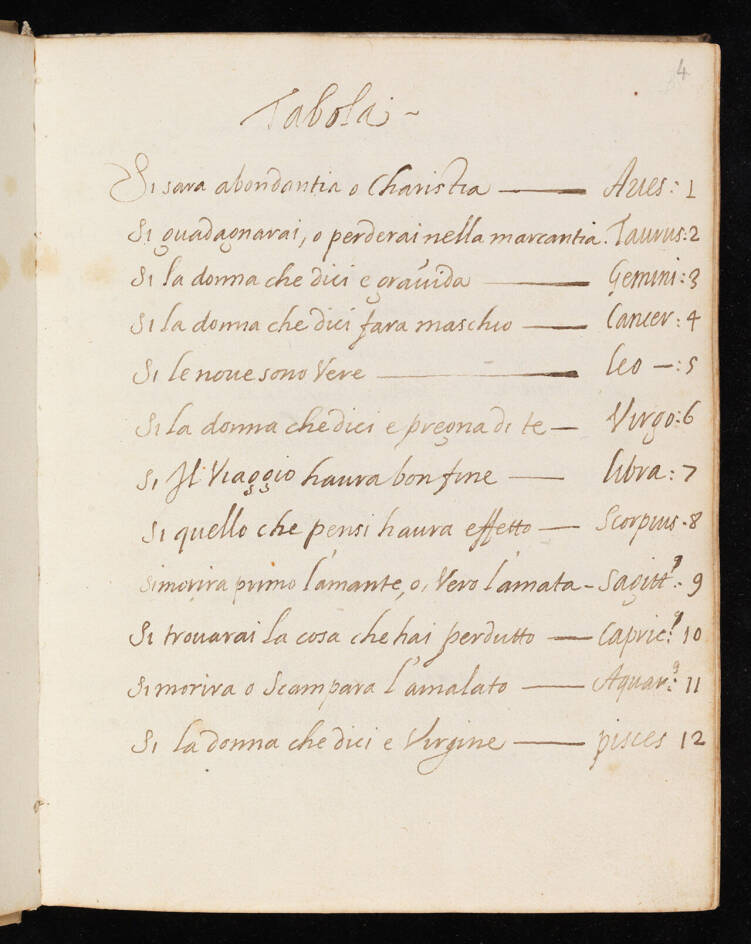 4
Tabola
Si sara abondantia o Charistia — Aries: 1
Si guadagnarai, o perderai nella marcantia. Taurus: 2
Si la donna che dici e gravida — Gemini: 3
Si la donna che dici fara maschio — Cancer: 4
Si le noue sono Vere — Leo —: 5
Si la donna che dici e pregna di te — Virgo: 6
Si Il Viaggio haura bon fine — libra: 7
Si quello che pensi haura effetto — Scorpius - 8
Si morira primo l'amante, o, Vero l'amata - Sagitt9: 9
Si trouarai la cosa che hai perdutto — Capric9: 10
Si morira o Scampara l'amalato — Aquar9: 11
Si la donna che dici e Virgine — pisces 12